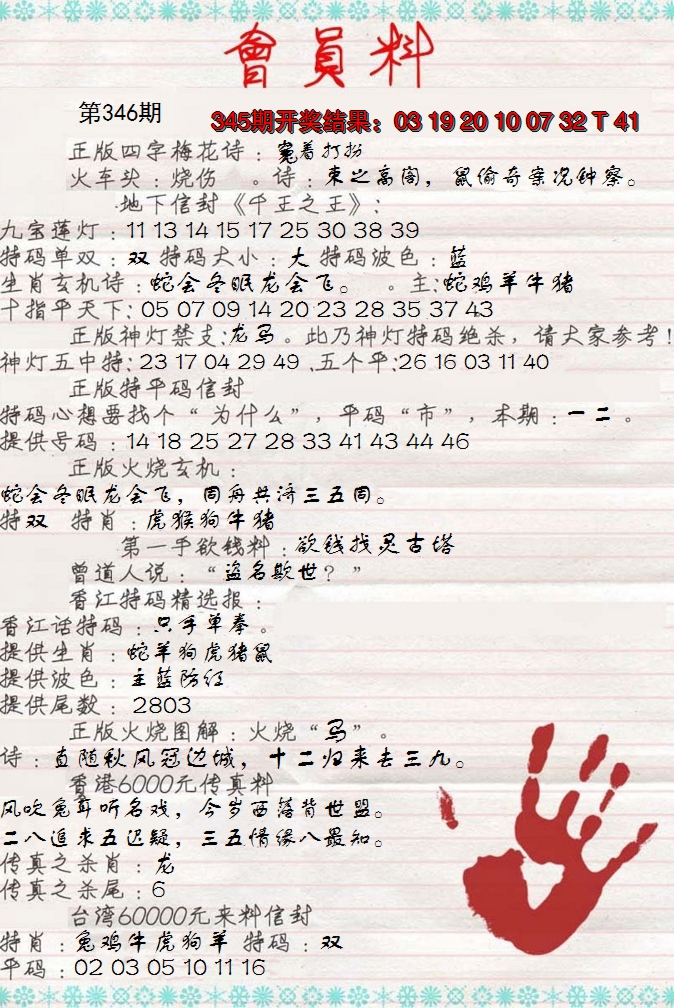 會員料
第346期
345期开奖结果：03 19 20 10 07 32 T 41
正版四字梅花诗：窥着打扮
火车头：烧伤 。诗：束之高阁，鼠偷奇案况钟察。
地下信封《千王之王》：
九宝莲灯：11 13 14 15 17 25 30 38 39
特码单双：双 特码大小：大 特码波色：蓝
生肖玄机诗：蛇会冬眠龙会飞。 。主：蛇鸡羊牛猪
十指平天下：05 07 09 14 20 23 28 35 37 43
正版神灯禁支：龙马。此乃神灯特码绝杀，请大家参考！
神灯五中特：23 17 04 29 49 .五个平：26 16 03 11 40
正版特平码信封
特码心想要找个“为什么”，平码“市”，本期：一二。
提供号码：14 18 25 27 28 33 41 43 44 46
正版火烧玄机：
蛇会冬眠龙会飞，同舟共济三五周。
特双 特肖：虎猴狗牛猪
第一手欲钱料：欲钱找灵古塔
曾道人说：“盗名欺世？”
香江特码精选报：
香江话特码：只手单拳。
提供生肖：蛇羊狗虎猪鼠
提供波色：主蓝防红
提供尾数：2803
正版火烧图解：火烧“马”。
诗：直随秋风冠边城，十二归来去三九。
香港6000元传真料
风吹兔耳听名戏，今岁西落背世盟。
二八追来五迟疑，三五情缘八最知。
传真之杀肖：龙
传真之杀尾：6
台湾60000元来料信封
特肖：兔鸡牛虎狗羊 特码：双
平码：02 03 05 10 11 16